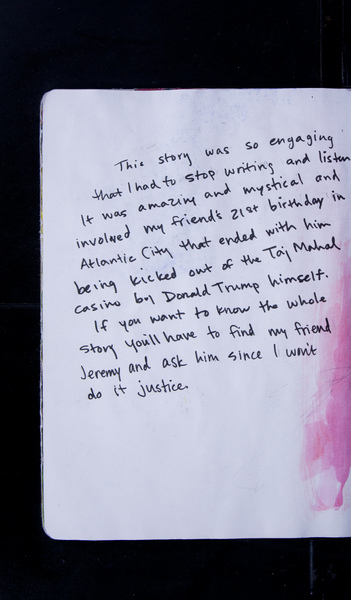 This story was so engaging
that I had to stop writing and listen
It was amazing and mystical and
involved my friend's 21st birthday in
Atlantic City that ended with him
being kicked out of the Taj Mahal
casino by Donald Trump himself.
If you want to know the whole
story you'll have to find my friend
Jeremy and ask him since I won't
do it justice.